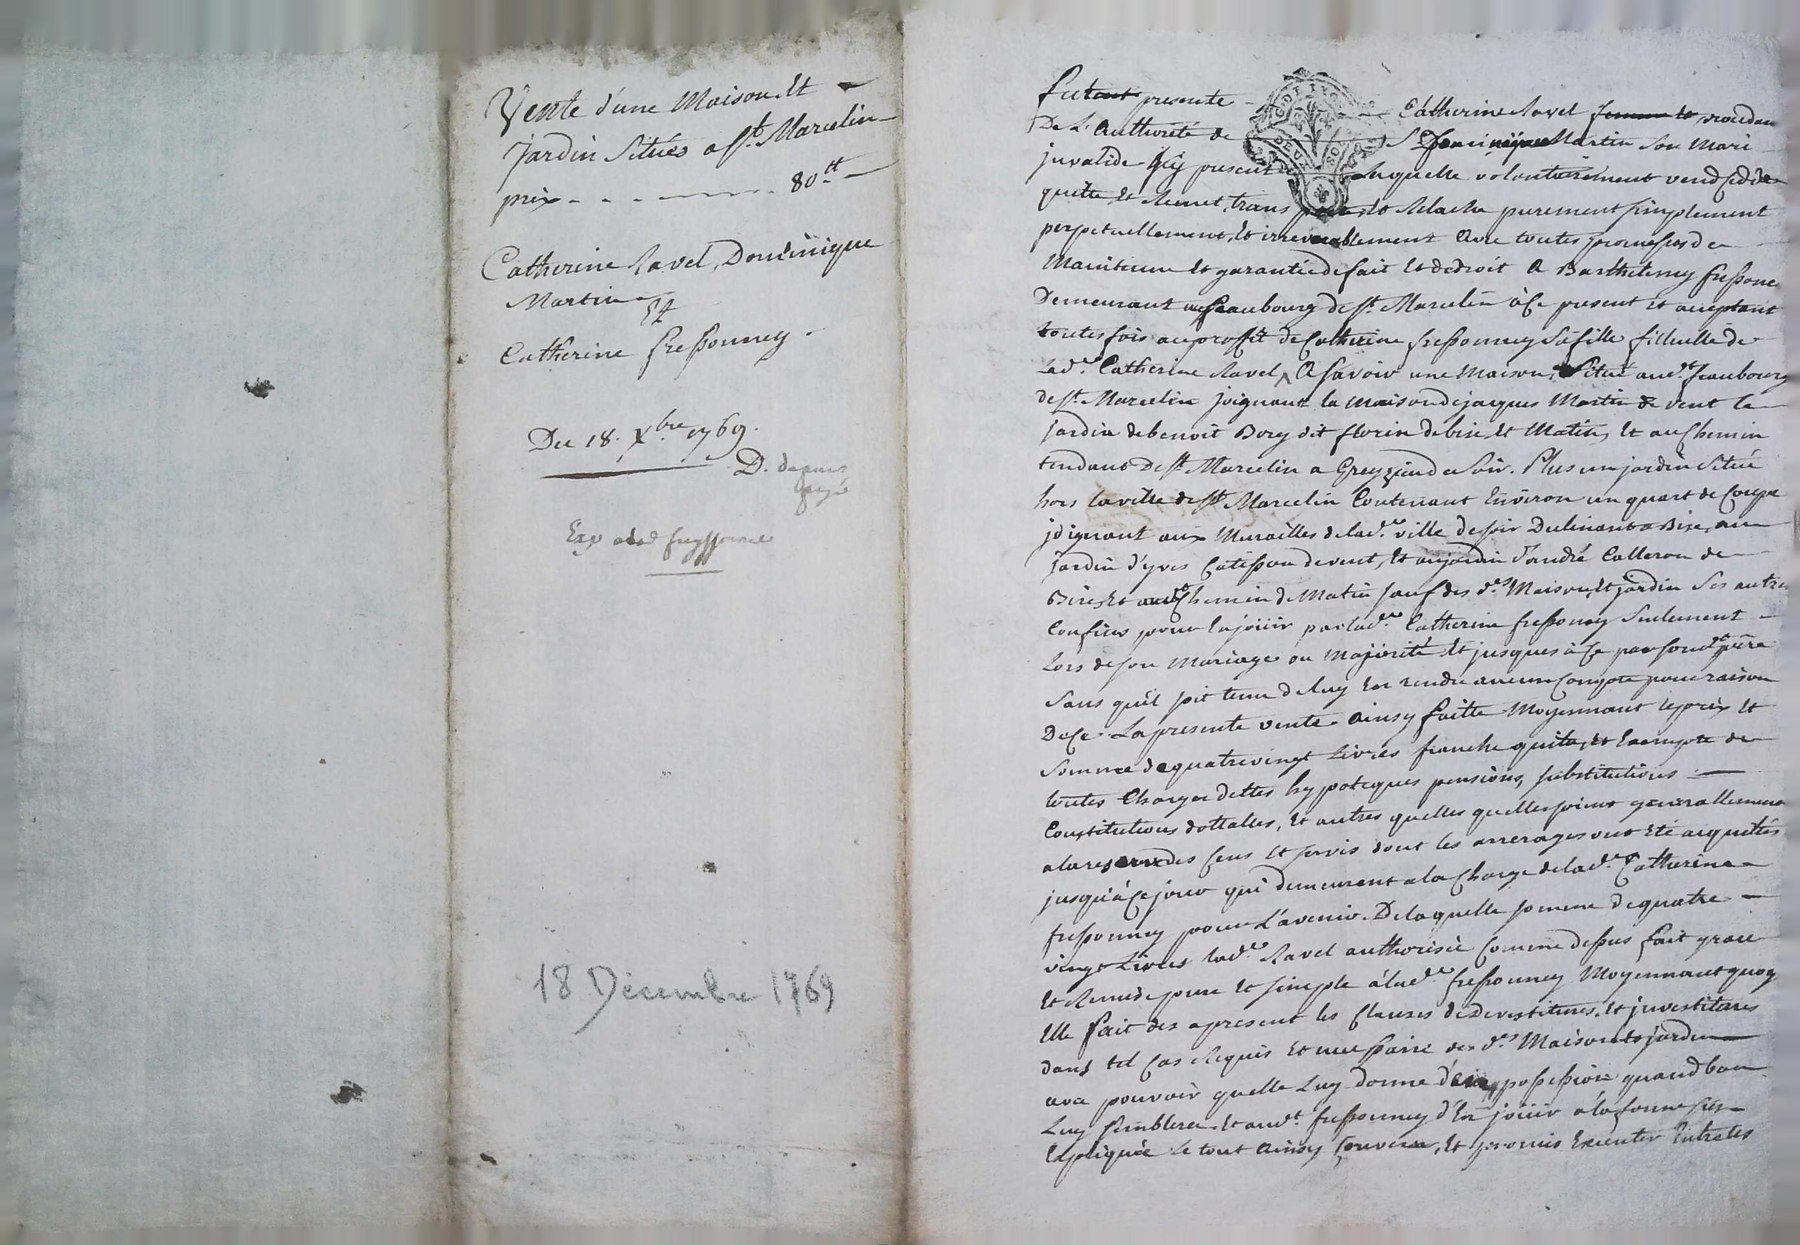 Vente d'une Maison Et
Jardin Situés a St. Marcelin
prix - - - - 80tt
Catherine Ravel, Dominique
Martin
Et
Catherine fressonney.
Du 18. Xbre 1769.
D. depuis
payé
18 Décembre 1769
fut presente Catherine Ravel procedan
De L'Authorité de Martin Son Mari
jnvalide jcy present Laquelle volontairement vend cede
quitte Et Remet, transporte, Et Relache purement simplement
perpetuellement, Et irrevocablement Avec toutes promesses de
Maintenue Et garantie de fait Et de droit A Barthelemy fressone
Demeurant au feaubourg de St. Marcelin à Ce present Et aceptant
toutes fois au proffit de Catherine fressonney Sa fille filleulle de
Lad.e Catherine Ravel A Savoir une Maison Situé aud.t feaubourg
de St. Marcelin joignant la Maison de jacques Martin de vent le
Jardin de benoit Bory dit florin de bise Et Matin, Et au Chemin
tendant de St. Marcelin a de Soir. Plus un jardin Situé
hors la ville de St. Marcelin Contenant Environ un quart de Coupe
joignant aux Murailles de lad.e ville de soir Declinant a Bise, au
Jardin d'yves de vent, Et au jardin d'andré Calleron de
Bise, Et aud.t Chemin de Matin sauf des d.es Maison, Et jardin Ses autres
Confins pour En jouir par lad.e Catherine fressoney Seulement
Lors de son Mariage ou Majorité Et jusques à Ce par sond.t père
Sans qu'il soit tenu de luy En rendre aucun Compte pour raison
De Ce. La presente vente Ainsy faitte Moyennant le prix Et
Somme de quatre vingt Livres franche quitte, Et Exempte de
toutes Charges dettes hypoteques pensions, substitutions
Constitutions dottalles, Et autres quelles quelles soient generallement
a la reserve des Cens Et servis dont les arrerages ont Eté aquittés
jusqu'à Ce jour qui demeurent a la Charge de lad.e Catherine
fressonney pour L'avenir. De laquelle somme de quatre
vingt Livres lad.e Ravel authorisée Comme dessus fait grace
Et Remise pure Et simple à lad.e fressonney Moyennant quoy
Elle fait des apresent les Clauses de Devestitures, Et jnvestitures
dans tel Cas Requis Et necessaire des d.es Maison Et jardin
avec pouvoir quelle Luy donne d'en possession quand bon
Luy semblera. Et aud.t fressonney d'En jouir à la forme sus
Expliquée Le tout Ainsy Convenu, Et promis Executer Entre les